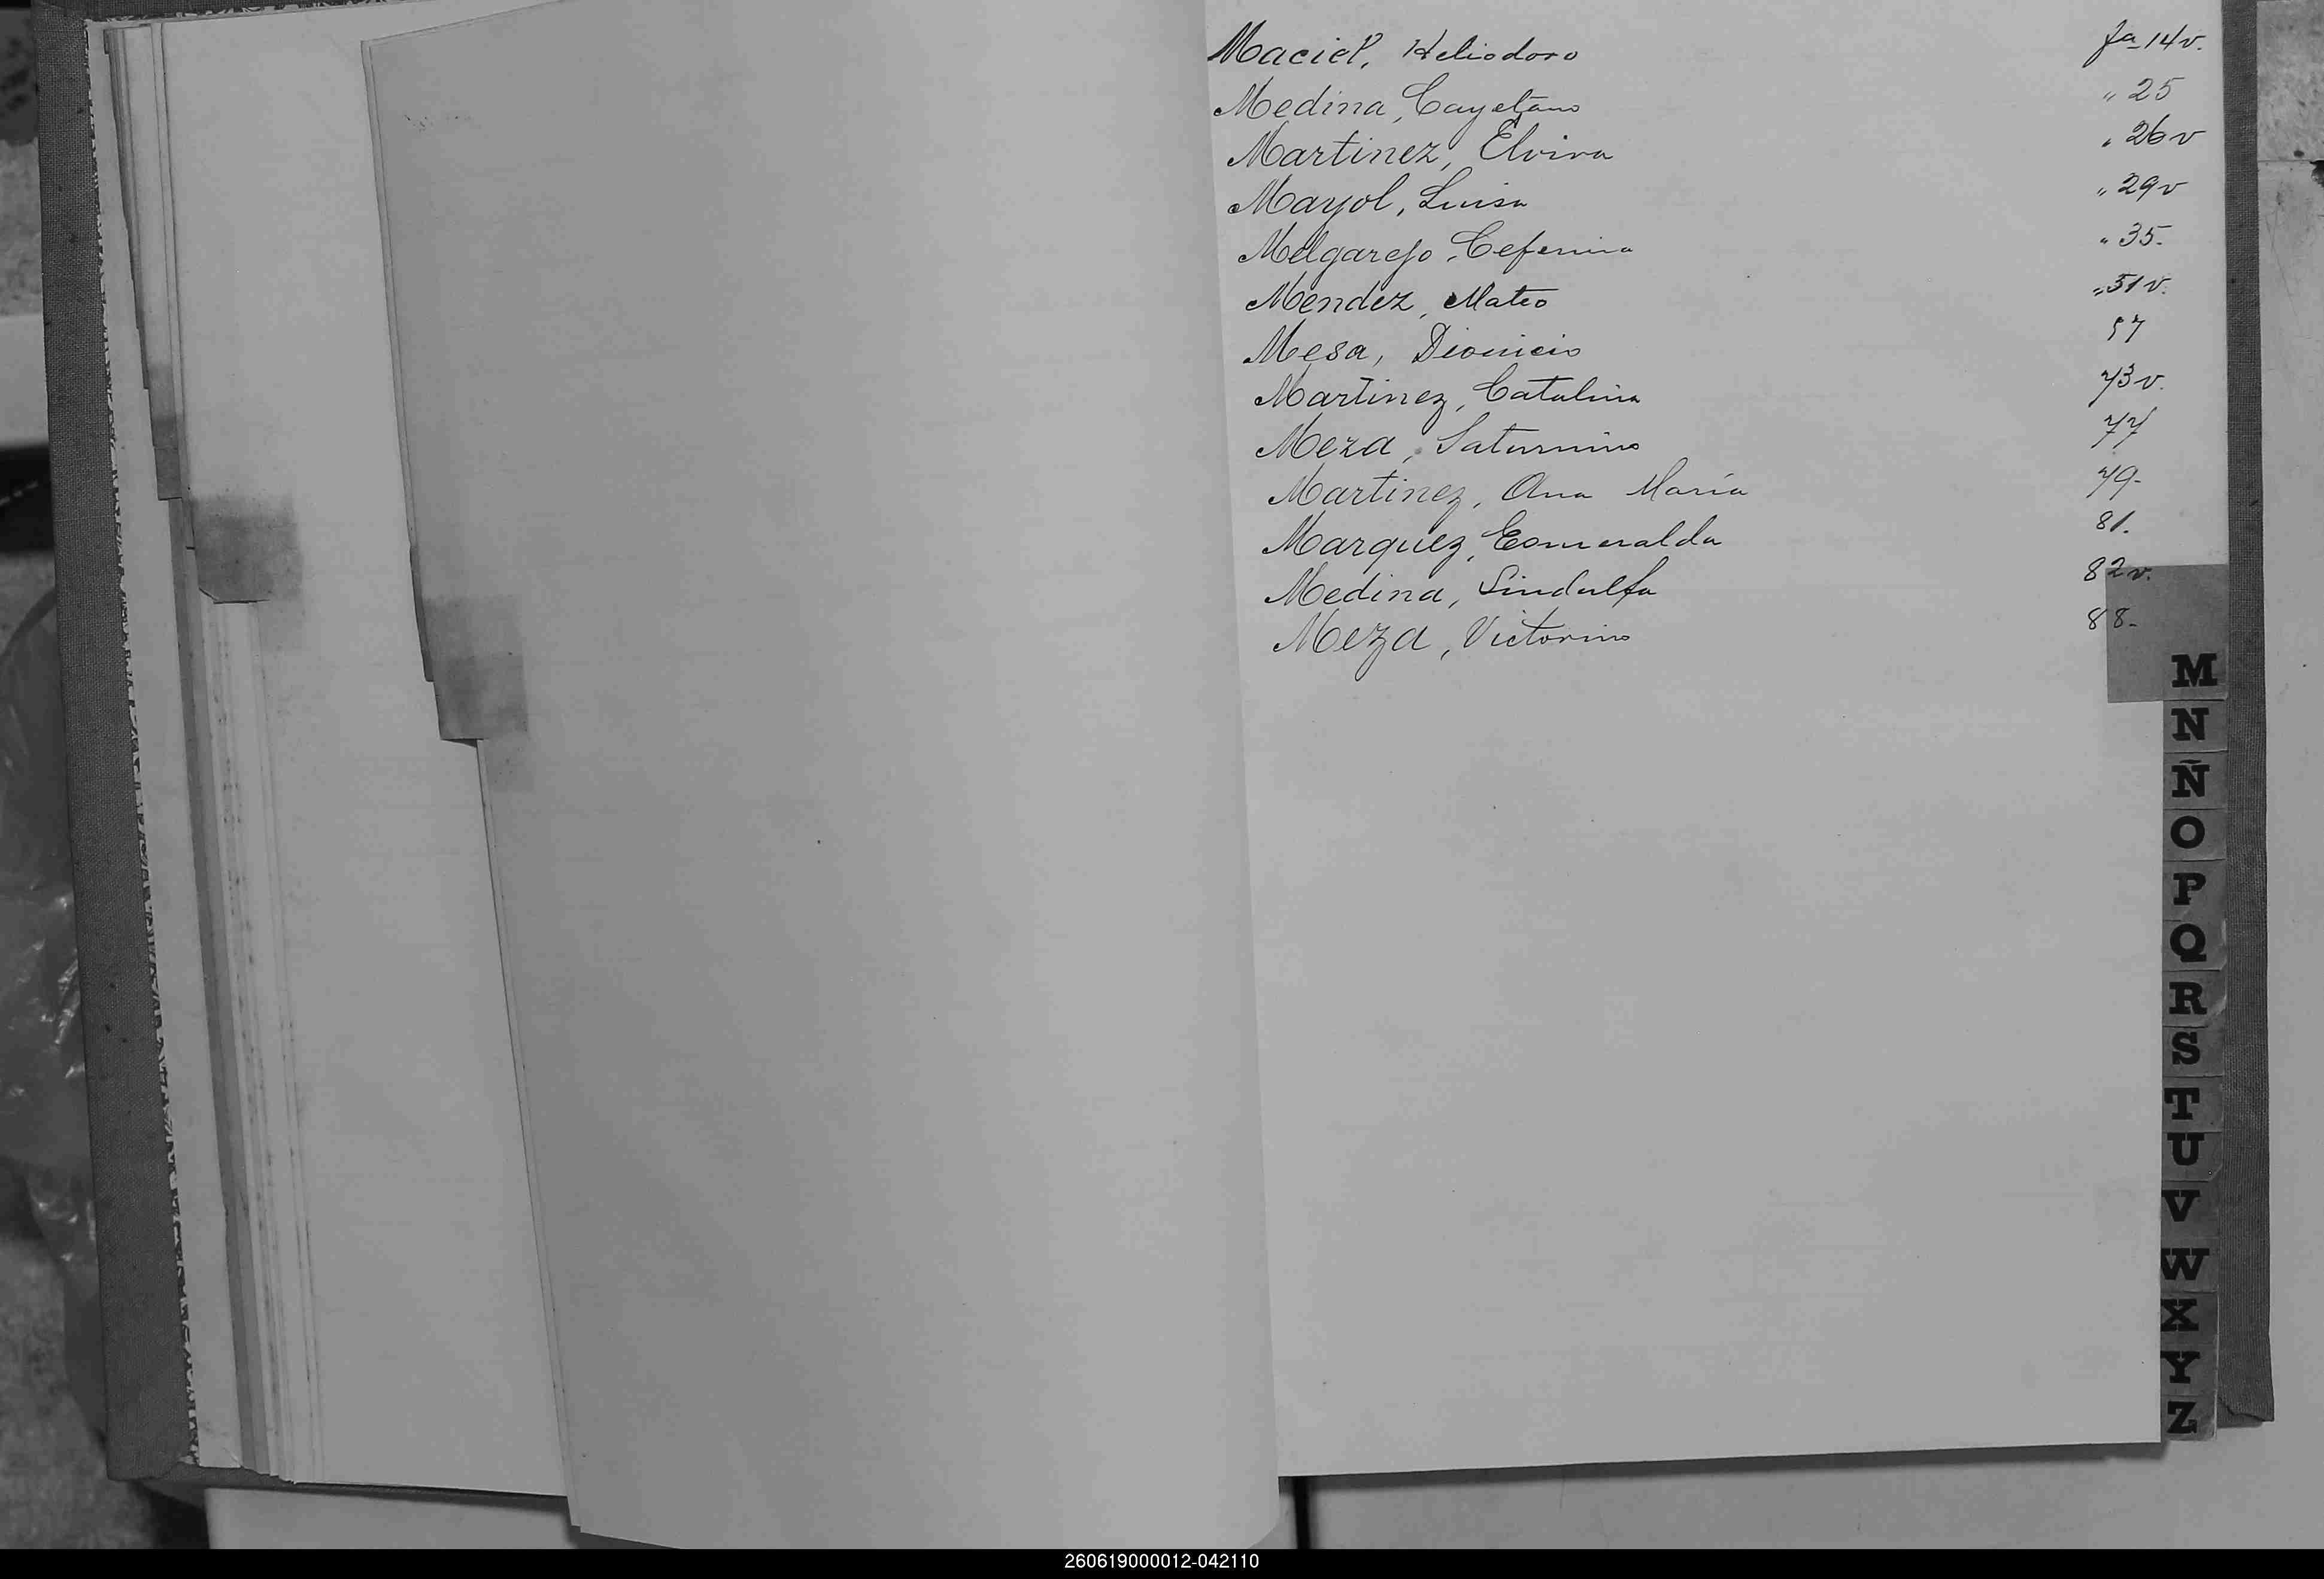 Maciel, Heliodoro fa 14v.
Medina, Cayetano " 25
Martinez, Elvira " 26v
Mayol, Luisa " 29v
Melgarejo, Ceferina " 35.
Mendez, Mateo " 51v.
Mesa, Dionicio 57
Martinez, Catalina 73v.
Meza, Saturnino 77
Martinez, Ana María 79-
Marquez, Esmeralda 81.
Medina, Sindulfa 82v.
Meza, Victorino 88-
M
N
Ñ
O
P
Q
R
S
T
U
V
W
X
Y
Z
260619000012-042110